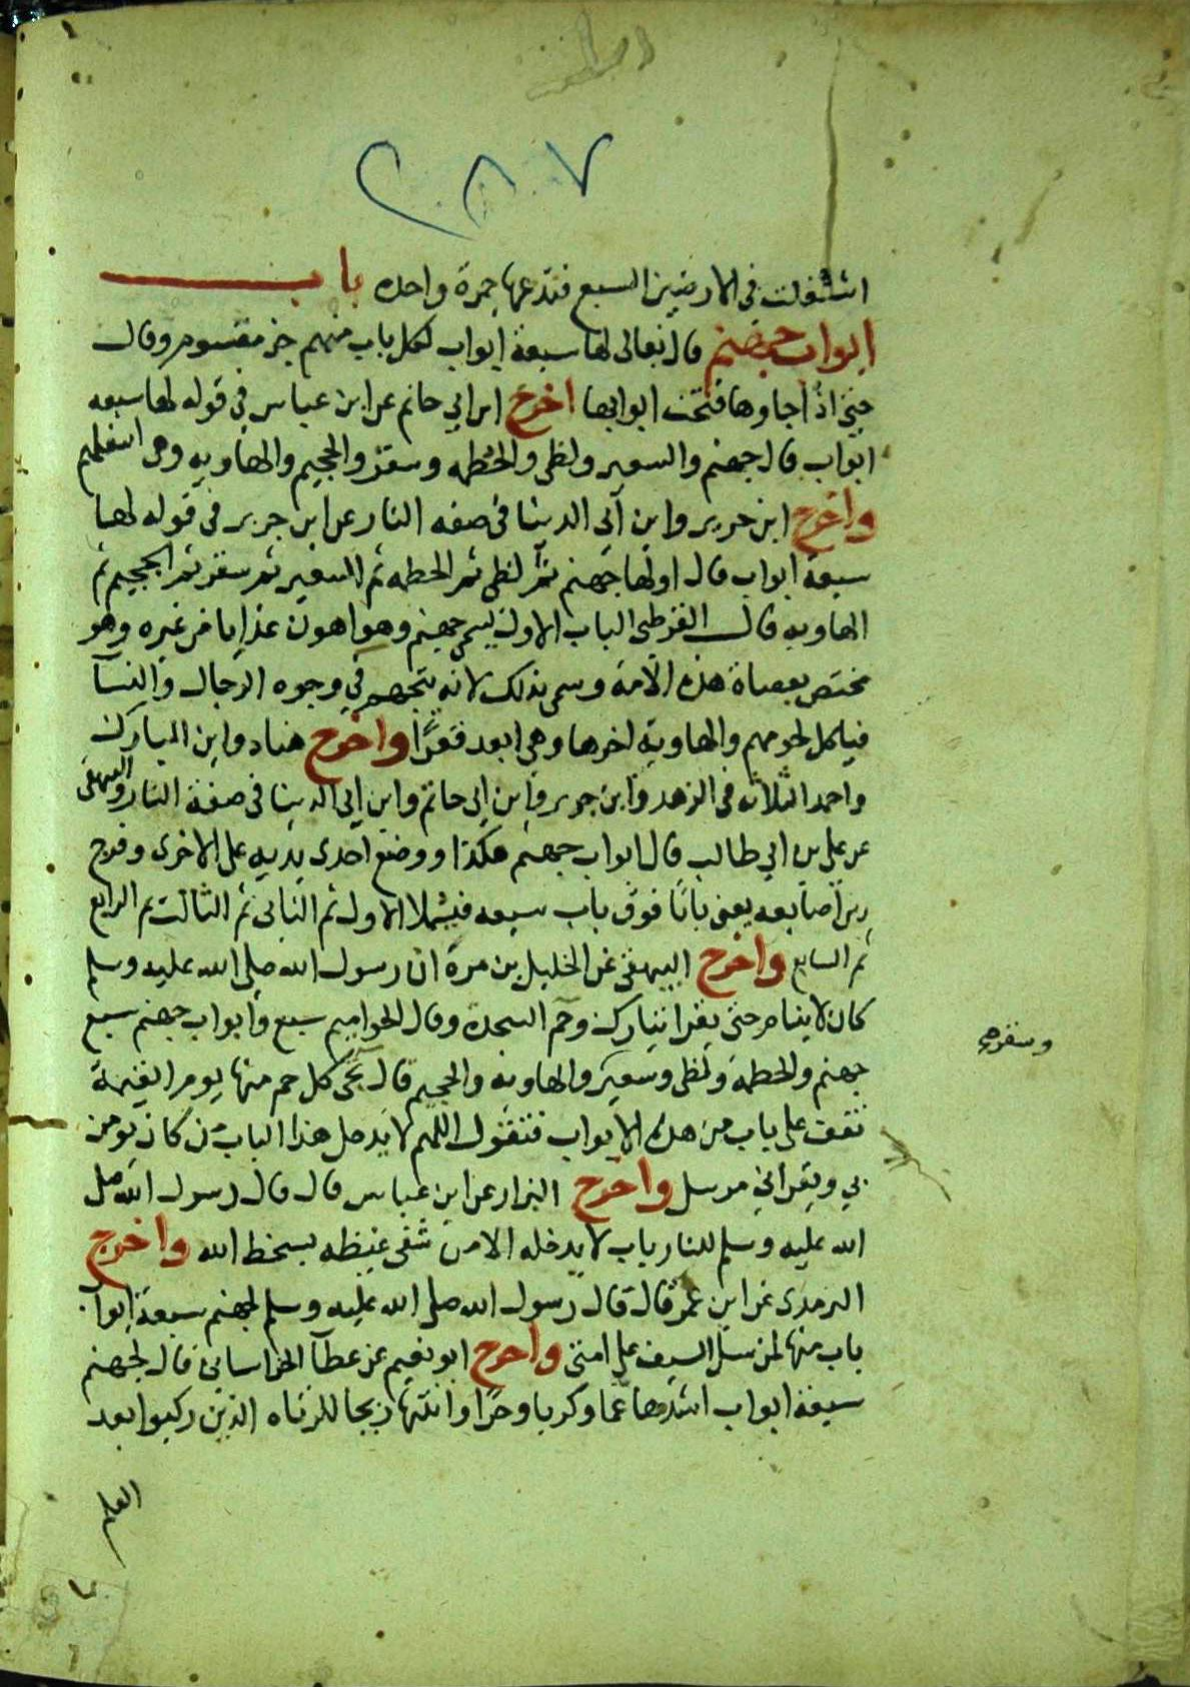 ٢٨٧
اشتغلت في الارضين السبع فتدعها جمرة واحده باب
ابواب جهنم قال تعالى لها سبعة ابواب لكل باب منهم جز مقسوم وقال
حتى اذا جاوها فتحت ابوابها اخرج ابن ابي حاتم عن ابن عباس في قوله لها سبعه
ابواب قال جهنم والسعير ولظى والحطمه وسقر والجحيم والهاويه وهي اسفلهم
واخرج ابن جرير وابن ابي الدينا في صفه النار عن ابن جرير في قوله لها
سبعة ابواب قال اولها جهنم ثم لظى ثم الحطمه ثم السعير ثم سقر ثم الجحيم ثم
الهاويه قال القرطبي الباب الاول يسمى جهنم وهو اهون عذابا من غيره وهو
مختص بعصاة هذه الامة وسمي بذلك لانه يتجهم في وجوه الرجال والنسآ
فياكل لحومهم والهاوية اخرها وهي ابعد قعرًا واخرج هناد وابن المبارك
واحمد الثلاثه في الزهد وابن جرير وابن ابي حاتم وابن ابي الدينا في صفة النار والبيهقي
عن علي بن ابي طالب قال ابواب جهنم هكذا ووضع احدى يديه على الاخرى وفرج
بين اصابعه يعني بابًا فوق باب سبعه فيمتلا الاول ثم الثاني ثم الثالث ثم الرابع
ثم السابع واخرج البيهقي عن الخليل بن مرة ان رسول الله صلى الله عليه وسلم
كان لا ينام حتى يقرا تبارك وحم السجدة وقال الحواميم سبع وابواب جهنم سبع
جهنم والحطمة ولظى وسعير والهاويه والجحيم قال تجى كل حم منها يوم القيمة
وسقر صح
تقف على باب من هذه الابواب فتقول اللهم لا يدخل هذا الباب من كان يومن
بي ويقراني مرسل واخرج البزار عن ابن عباس قال قال رسول الله صلى
الله عليه وسلم للنار باب لا يدخله الا من شفى غيظه بسخط الله واخرج
الترمذى عن ابن عمر قال قال رسول الله صلى الله عليه وسلم لجهنم سبعة ابواب
باب منها لمن سل السيف على امتى واخرج ابو نعيم عن عطآ الخراسانى قال لجهنم
سبعة ابواب اشدها غما وكربا وحرا وانتنها ريحا للزناه الذين ركبوا بعد
العلم